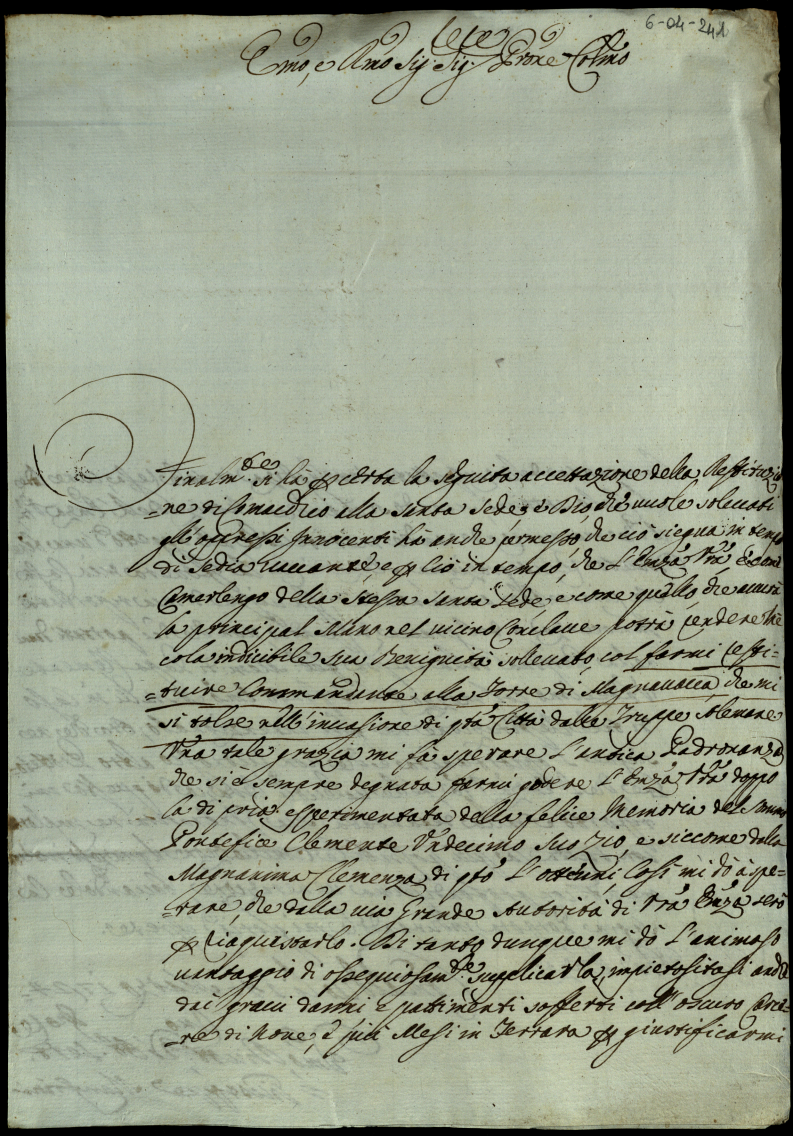 6-04-241
Emo, e Rmo Sig. Sig. Prone Colmo
Finalm.te si hà p certa la seguita accettazione della Restituzio
=ne di Comacchio alla Santa Sede, e Dio, che vuole solevati
gli oppressi Innocenti hà anche permesso che ciò siegua in tempo
di Sedia vacante, e p ciò in tempo, che L'Emza Vrã è
Camerlengo della stessa Santa Sede, e come quello, che averà
la principal Mano nel vicino Conclave potrà rendere
indicibile Sua Benignità sollevato col farmi resti-
=tuire Commandante alla Torre di Magnavacca, che mi
si tolse nell'invasione di qta Città dalle Truppe Alemane
Una tale grazia mi fà sperare L'antica Padronanza
che si è sempre degnata farmi godere L'Emza Vrã doppo
la di pria esperimentata della felice Memoria del Sommo
Pontefice Clemente Undecimo suo Zio, e siccome dalla
Magnanima Clemenza di qto L'ottenni, Così mi dò à spe-
=rare, che dalla via Grande Autorità di Vrã Emza serò
p riaquistarlo. Di tanto dunque mi dò L'animoso
vantaggio di ossequiosam.te supplicarla, impietositasi anche
dai gravi danni e pattimenti sofferti coll'oscuro Carce-
=re di Nove, è più Mesi in Ferrara p giustificarmi